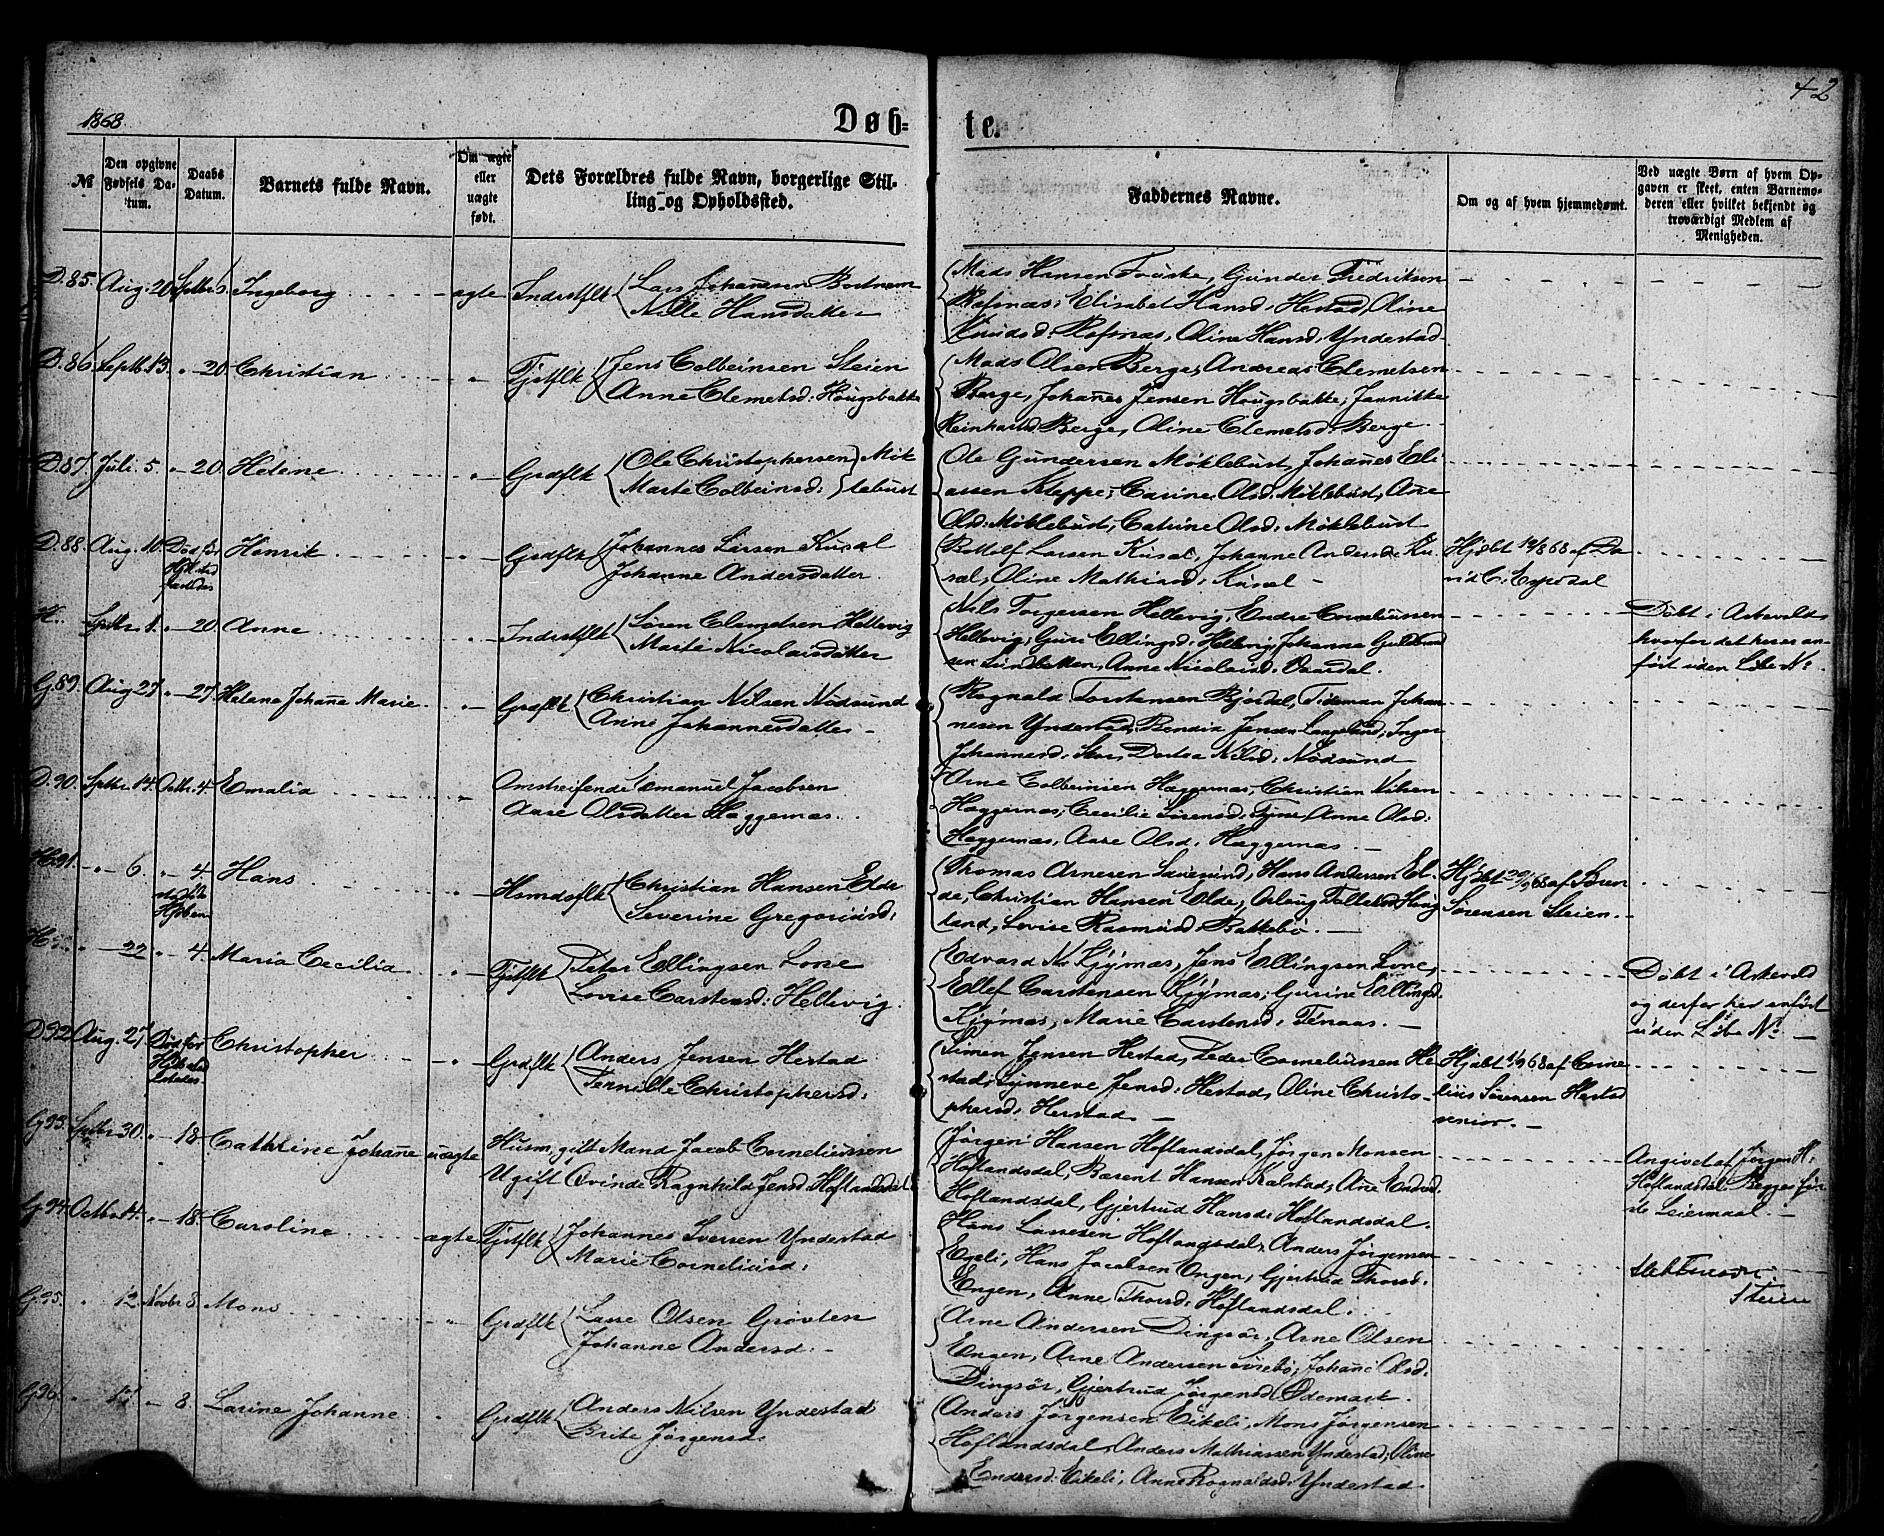 1868.
Døb-
te.
42
№
Den opgivne Fødsels Datum.
Daabs Datum.
Barnets fulde Navn.
Om ægte eller uægte født.
Dets Forældres fulde Navn, borgerlige Stilling og Opholdssted.
Faddernes Navne.
Om og af hvem hjemmedømt.
Ved uægte Børn af hvem Opgaven er skeet, enten Barnemoderen eller hvilket bekjendt og troværdigt Medlem af Menigheden.
D.85. Aug. 20 Sptbr 6. Ingeborg ægte Indrstflk Lars Johannesen Bortnem
Nille Hansdatter
Mads Hansen Fouske, Gunder Fredriksen
Refsnæs, Elisabet Hansd. Hestad, Oline
Knudsd. Refsnæs, Oline Hansd. Yndestad
D.86. Septb. 13. " 20. Christian " Tjstflk Jens Colbeinsen Steien
Anne Clemetsd: Hougsbakke
Mads Olsen Berge, Andreas Clemetsen
Berge, Johanes Jensen Hougsbakke, Jannikke
Reinhartsd. Berge, Oline Clemetsd. Berge
D.87. Juli. 5. " 20. Helene " Grdflk Ole Christophersen Mik
Marte Colbeinsd: lebust
Ole Gundersen Miklebust, Johanes Eli
assen Kleppe, Carine Olsd. Miklebust, Ane
Olsd: Miklebust, Catrine Olsd: Miklebust
D.88. Aug. 10. Død før Henrik " Grdflk Johannes Larsen Kusal
Johanne Andersdatter.
Bottolf Larsen Kusal, Johanne Andersd: Ku
sal, Oline Mathiasd: Kusal
Hjdbt 12/8 68 af Da
vid C: Espedal
H. Sptbr. 1. " 20. Anne " Indrstflk Søren Clemetsen Hellevig
Marte Nicolaisdatter
Nils Torgersen Hellevig, Endre Corneliussen
Hellevig, Guri Ellingsd: Hellevig, Johanna
Anne Nicolaisd:
Døbt i Askevold
hvorfor det her er an-
ført uden Løbe №.
G.89. Aug 27. " 27. Helene Johane Marie " Grdflk Christian Nilsen Nødsund
Anne Johannesdatter
Ragnald Torstensen Bjordal, Tideman Johan-
nesen Yndestad, Bendix Jensen Langelund, Inger
Johannesd. Dortea Nilsd. Nødsund
D.90. Sptbr. 14. Octbr. 4. Emalia " Omstreifende Emanuel Jacobsen
Aase Olsdatter Haggernæs.
Arne Colbeinsen Haggernæs, Christian Nilsen
Haggernæs, Cecilie Sørensd: Anne Olsd:
Haggernæs, Aase Olsd. Haggernæs.
H.91. " 6. " 4. Hans " Hsmdsflk Christian Hansen Elde
Severine Gregoriusd:
Thomas Arnesen Hans Andersen El-
de, Christian Hansen Elde, Houg
land, Lovise Rasmusd. Bakkebø.
Hjdbt 20/9 68 af Søren
Sørensen Steien.
H. " 22 " 4. Maria Cecilia " Tjstflk Peter Ellingsen Lone
Lovise Carstensd: Hellevig.
Edvard N. Jens Ellingsen Lone,
Ellef Carstensen Gurine Ellingsd.
Marie Carstensd:
Døbt i Askevold
og derfor her anført
uden Løbe №
D.92 Aug. 27. Død før Christopher " Grdflk Anders Jensen Hestad
Pernille Christophersd:
Simen Jensen Hestad, Peder Corneliussen He-
stad, Synneve Jensd: Hestad, Oline Christo-
phersd: Hestad
Hjdbt 1/9 68 af Corne
lius Sørensen Hestad
senior.
G.93. Sptbr 30. " 18. Cathrine Johane uægte Husm, gift Mand Jacob Corneliussen
Ugift Qvinde Ragnhild Jensd. Hoflandsdal
Jørgen Hansen Hoflandsdal, Jørgen Monsen
Hoflandsdal, Berent Hansen Kalstad,
Hoflandsdal, Gjertrud Hansd: Hoflandsdal.
Angivet af Jørgen H:
Hoflandsdal. Begges før-
ste Leiermaal.
G.94. Octbr. 14. " 18. Caroline ægte Tjstflk Johannes Iversen Yndestad
Marie Corneliusd:
Hans Lassesen Hoflandsdal, Anders Jørgensen
Egeli, Hans Jacobsen Engen, Gjertrud Thorsd:
Engen, Anne Thorsd: Hoflandsdal.
Steien
G.95. " 12 Novbr 8. Mons " Grdflk Lasse Olsen Grøvlen
Johanne Andersd:
Arne Andersen Dingsør, Arne Olsen
Engen, Arne Andersen Johane Olsd.
Dingsør, Gjertrud Jørgensd. Ødemark.
G.96. " " 8. Larine Johanne " Grdflk Anders Nilsen Yndestad
Brite Jørgensd.
Anders Jørgensen Eikeli, Mons Jørgensen
Hoflandsdal, Anders Mathiassen Yndestad, Oline
Endersd: Eikeli, Anne Ragnaldsd: Yndestad.